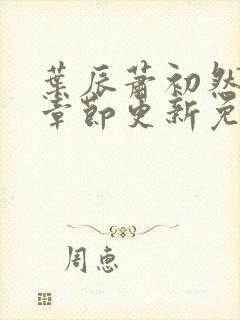 葉辰蕭初然
章節更新免
周惠